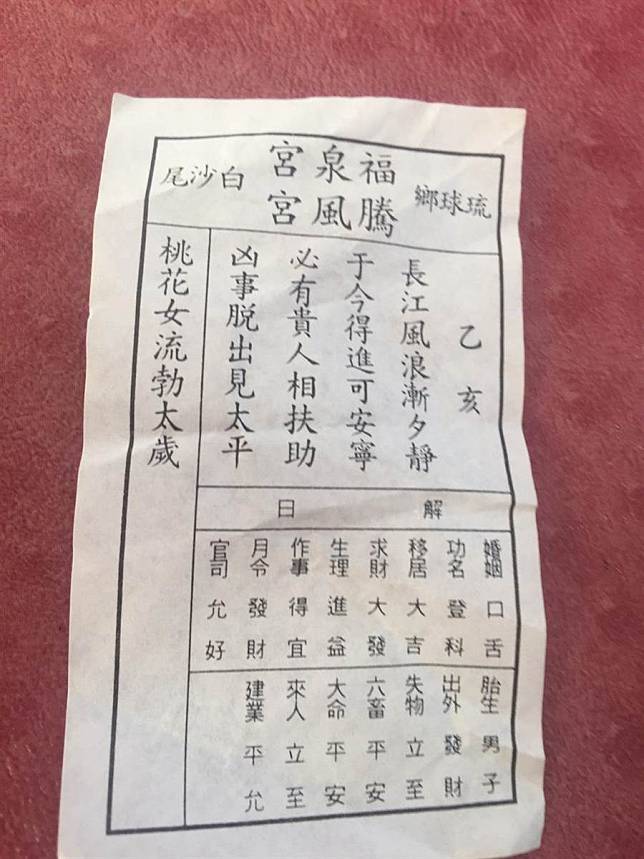 琉球鄉
福泉宮
騰風宮
白沙尾
乙亥
長江風浪漸夕靜
于今得進可安寧
必有貴人相扶助
凶事脫出見太平
桃花女流勃太歲
解日
婚姻口舌
功名登科
移居大吉
求財大發
生理進益
作事得宜
月令發財
官司允好
胎生男子
出外發財
失物立至
六畜平安
大命平安
來人立至
建業平允